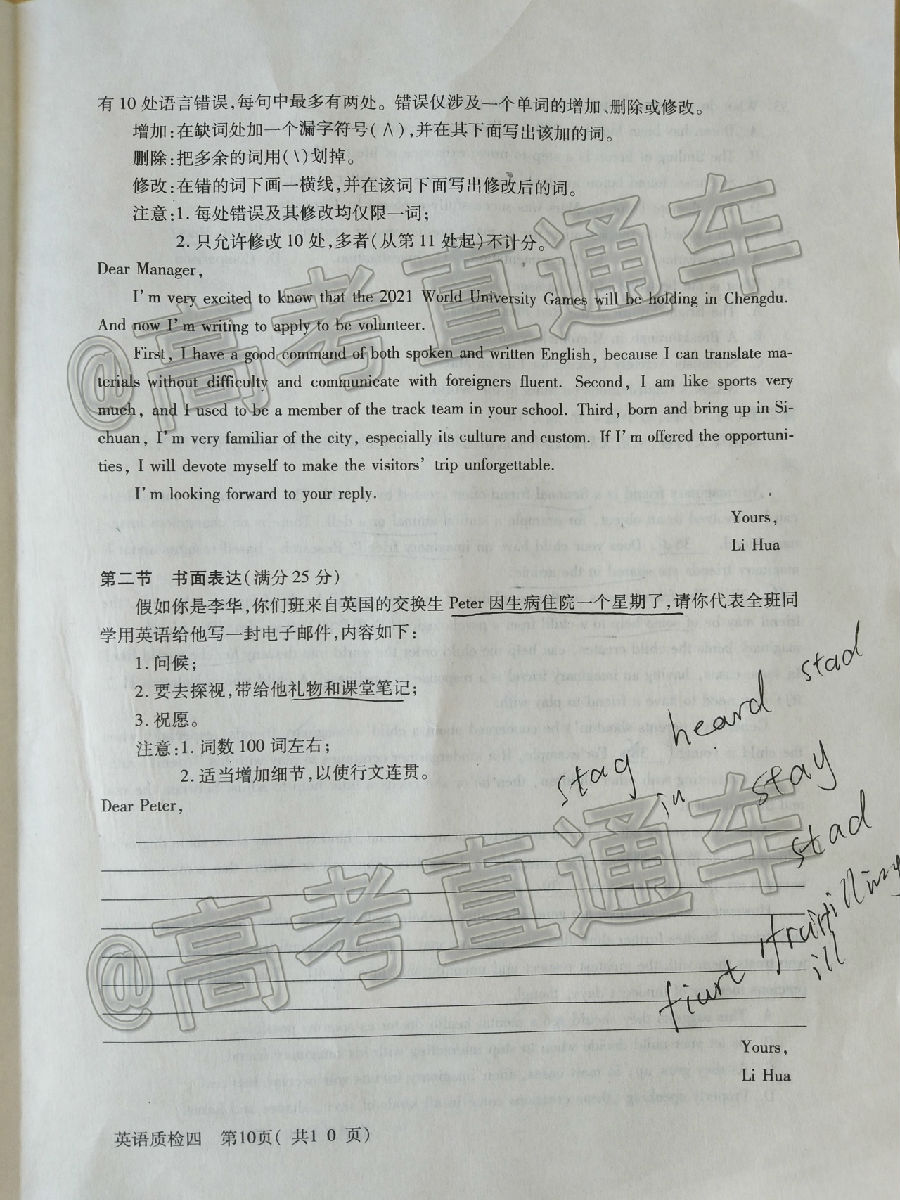 有10处语言错误,每句中最多有两处。错误仅涉及一个单词的增加、删除或修改。
增加:在缺词处加一个漏字符号(∧),并在其下面写出该加的词。
删除:把多余的词用(\)划掉。
修改:在错的词下画一横线,并在该词下面写出修改后的词。
注意:1. 每处错误及其修改均仅限一词;
2. 只允许修改10处,多者(从第11处起)不计分。
Dear Manager,
I'm very excited to know that the 2021 World University Games will be holding in Chengdu.
And now I'm writing to apply to be volunteer.
First, I have a good command of both spoken and written English, because I can translate ma-
terials without difficulty and communicate with foreigners fluent. Second, I am like sports very
much, and I used to be a member of the track team in your school. Third, born and bring up in Si-
chuan, I'm very familiar of the city, especially its culture and custom. If I'm offered the opportuni-
ties, I will devote myself to make the visitors' trip unforgettable.
I'm looking forward to your reply.
Yours,
Li Hua
第二节 书面表达(满分25分)
假如你是李华,你们班来自英国的交换生Peter因生病住院一个星期了,请你代表全班同
学用英语给他写一封电子邮件,内容如下:
1. 问候;
2. 要去探视,带给他礼物和课堂笔记;
3. 祝愿。
注意:1. 词数100词左右;
2. 适当增加细节,以使行文连贯。
Dear Peter,
heard stad
stag in stay
stad
ill
Yours,
Li Hua
英语质检四 第10页(共1 0 页)
@高考直通车
@高考直通车